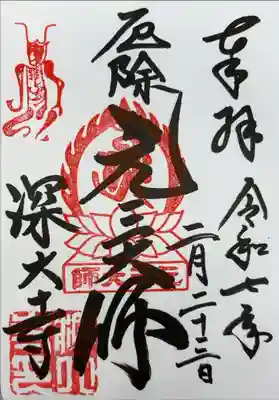 奉拝
令和七年
二月二十三日
厄除
元三大師
深大寺
元三大師